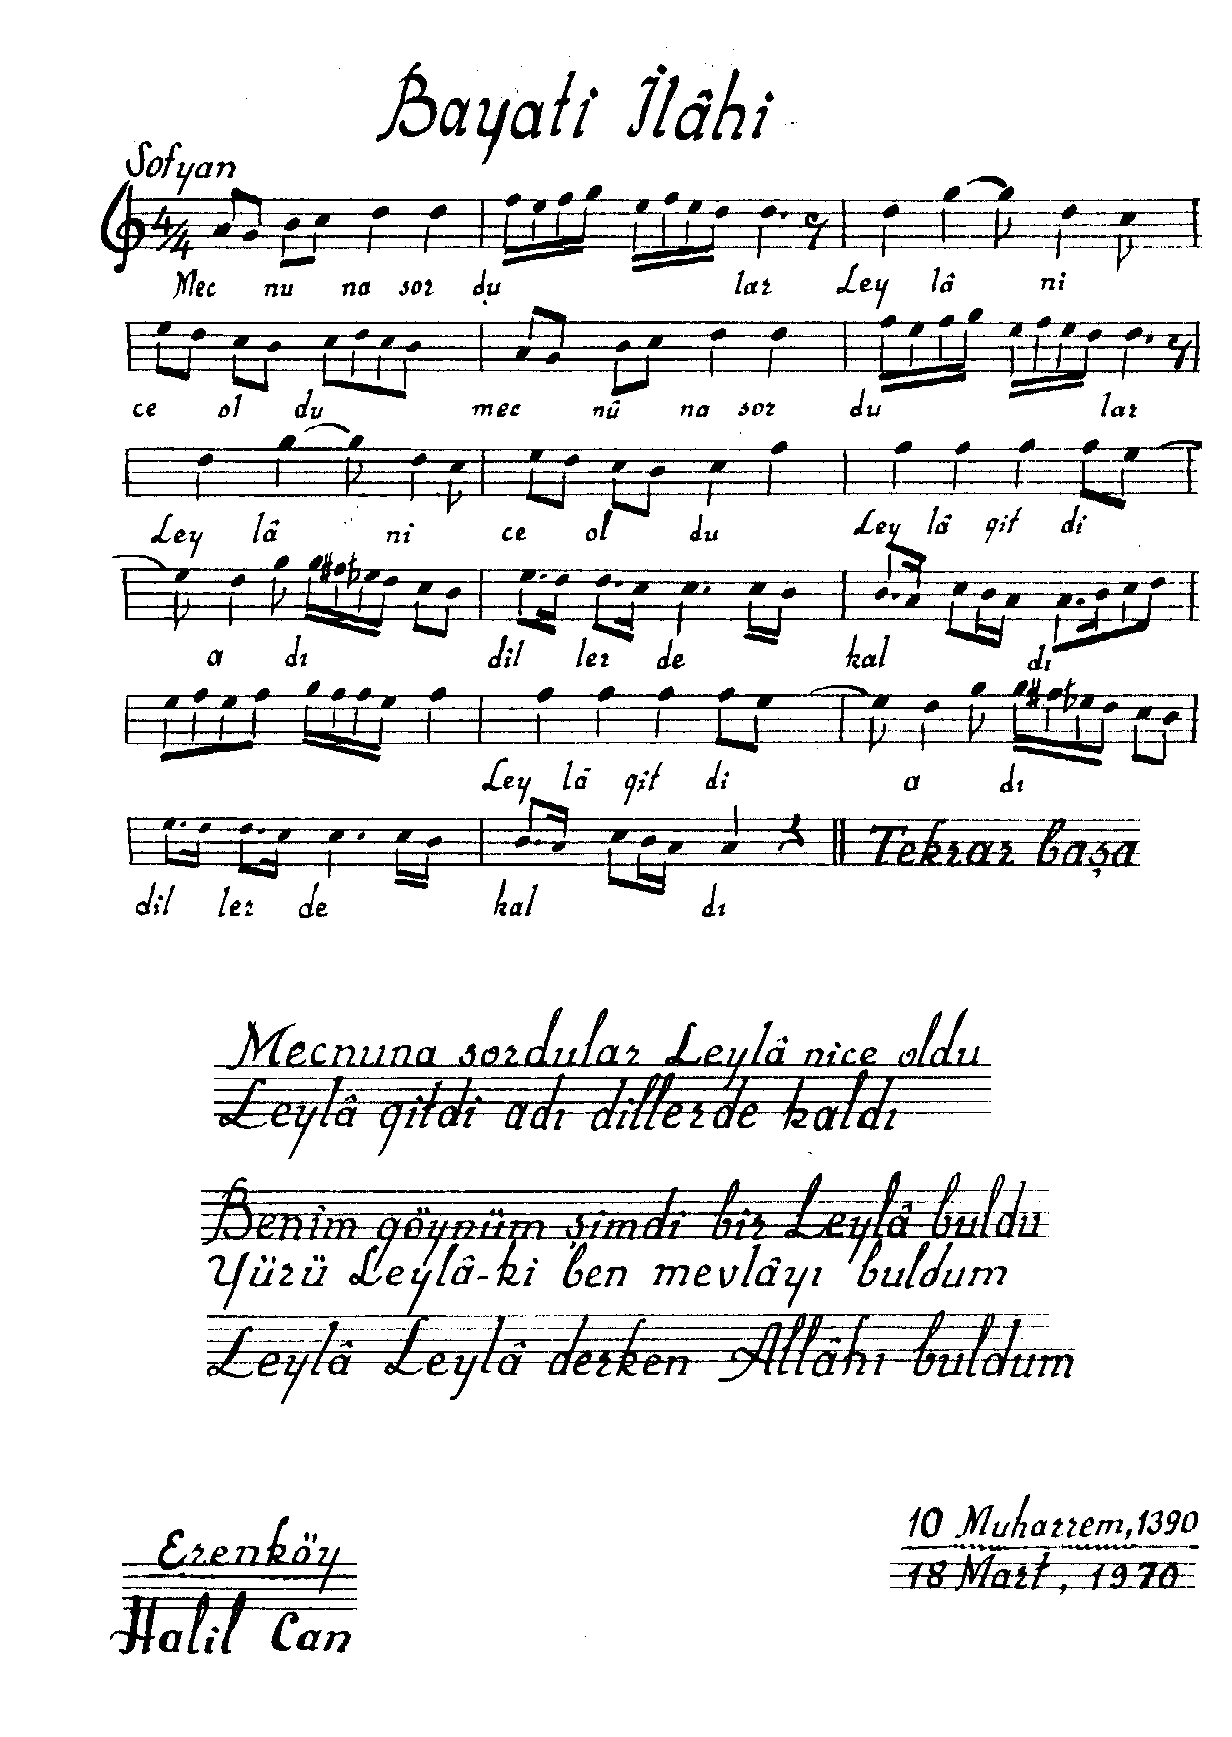 Bayati İlâhi
Sofyan
4/4
Mec nu na sor du lar Ley lâ ni
ce ol du mec nû na sor du lar
Ley lâ ni ce ol du Ley lâ git di
a dı dil ler de kal dı
Ley lâ git di a dı
Tekrar başa
dil ler de kal dı
Mecnuna sordular Leylâ nice oldu
Leylâ gitdi adı dillerde kaldı
Benim göynüm şimdi bir Leylâ buldu
Yürü Leylâ-ki ben mevlâyı buldum
Leylâ Leylâ derken Allâhı buldum
10 Muharrem, 1390
Erenköy
18 Mart, 1970
Halil Can